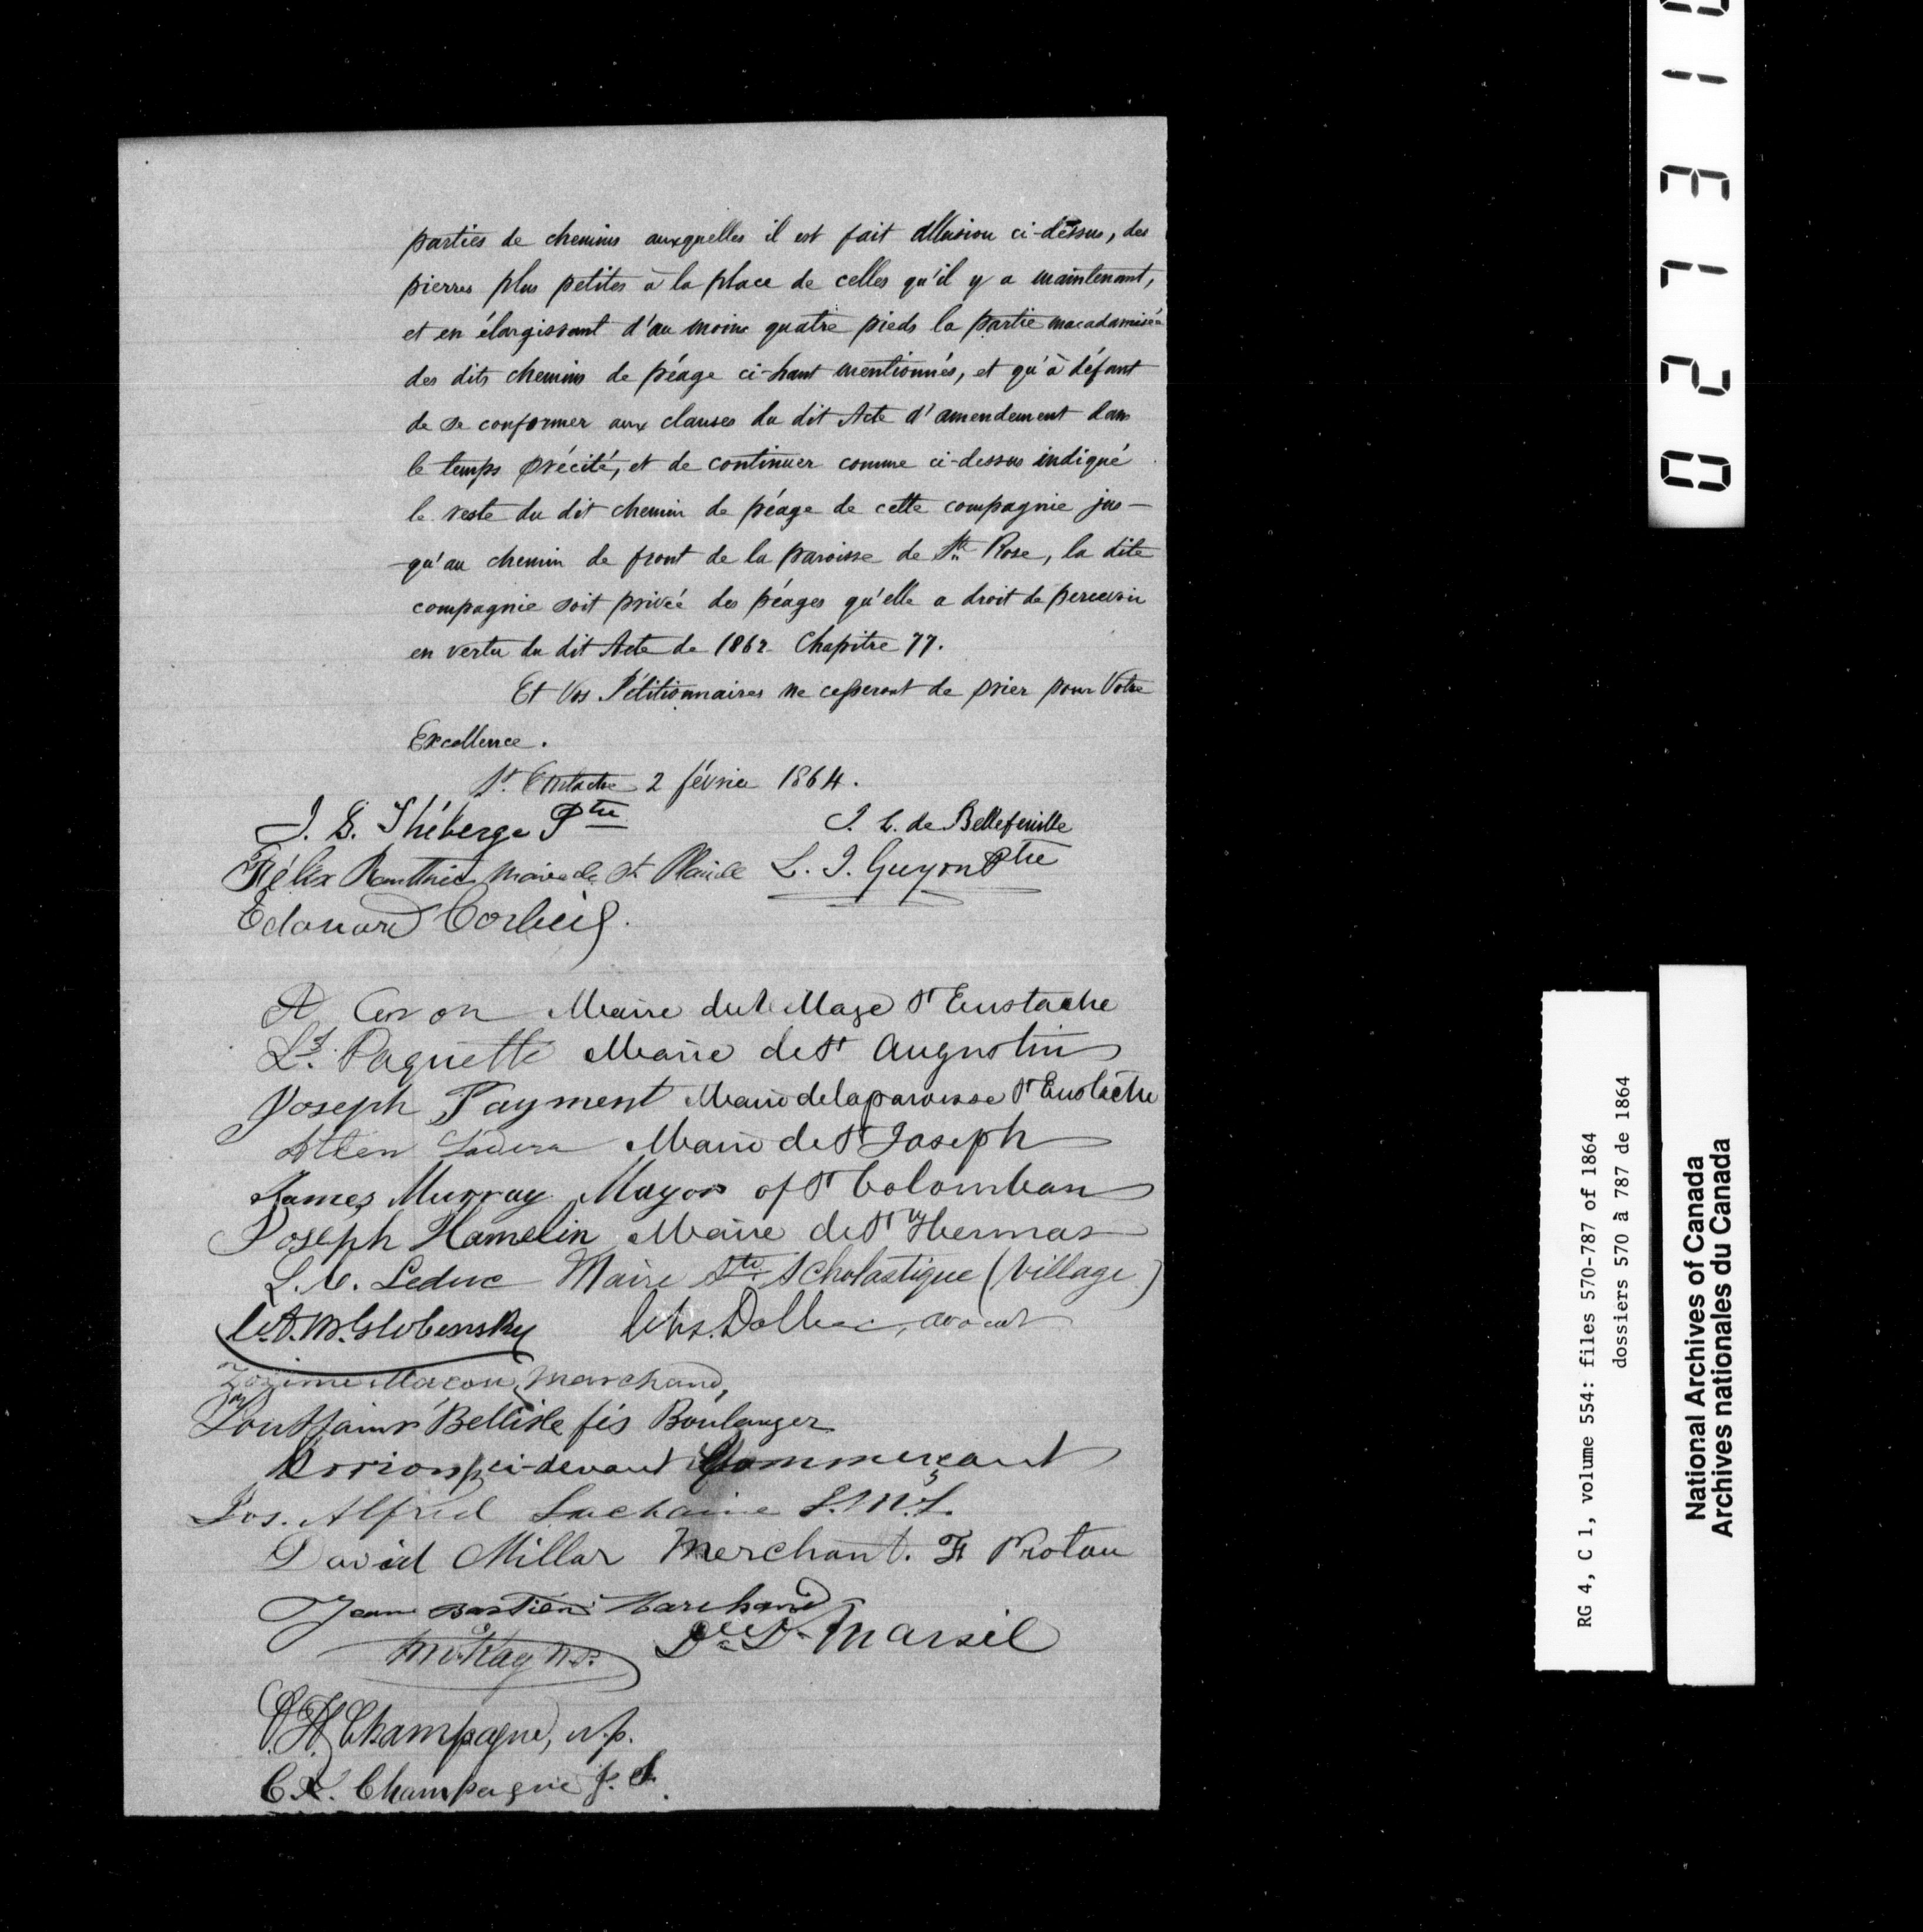 parties de chemins auxquelles il est fait allusion ci-dessus, des
pierres plus petites à la place de celles qu'il y a maintenant,
et en élargissant d'au moins quatre pieds la partie macadamisée
des dits chemins de péage ci-haut mentionnés, et qu'à défaut
de se conformer aux clauses du dit Acte d'amendement dans
le temps précité, et de continuer comme ci-dessus indiqué
le reste du dit chemin de péage de cette compagnie jus-
qu'au chemin de front de la paroisse de Ste Rose, la dite
compagnie soit privée des péages qu'elle a droit de percevoir
en vertu du dit Acte de 1862 Chapitre 77.
Et Vos Pétitionnaires ne cesseront de prier pour Votre
Excellence.
St. Eustache 2 février 1864.
J. G. Théberge Ptre
J. L. de Bellefeuille
Félix Routhier Maire de St Placide
L. J. Guyon Ptre
Edouard Corbeil.
Maire du Village St Eustache
Ls. Paquette Maire de St Augustin
Joseph Payment Maire de la paroisse St Eustache
Maire de St Joseph
James Murray Mayor of St Colomban
Joseph Hamelin Maire de St Hermas
L. C. Leduc Maire Ste Scholastique (Village)
C. A. M. Globensky
Chs. Dolbec, avocat
Zozime Macou, Marchand,
Toussaint Bellisle fils Boulanger
ci-devant Commerçant
Jos. Alfred Lachaine
David Millar Merchant. F Protau
Jean Bastien Marchand
McKay N.P.
D. Marsil
C. H. Champagne, n.p.
C. L. Champagne
02731
RG 4, C 1, volume 554: files 570-787 of 1864
dossiers 570 à 787 de 1864
National Archives of Canada
Archives nationales du Canada